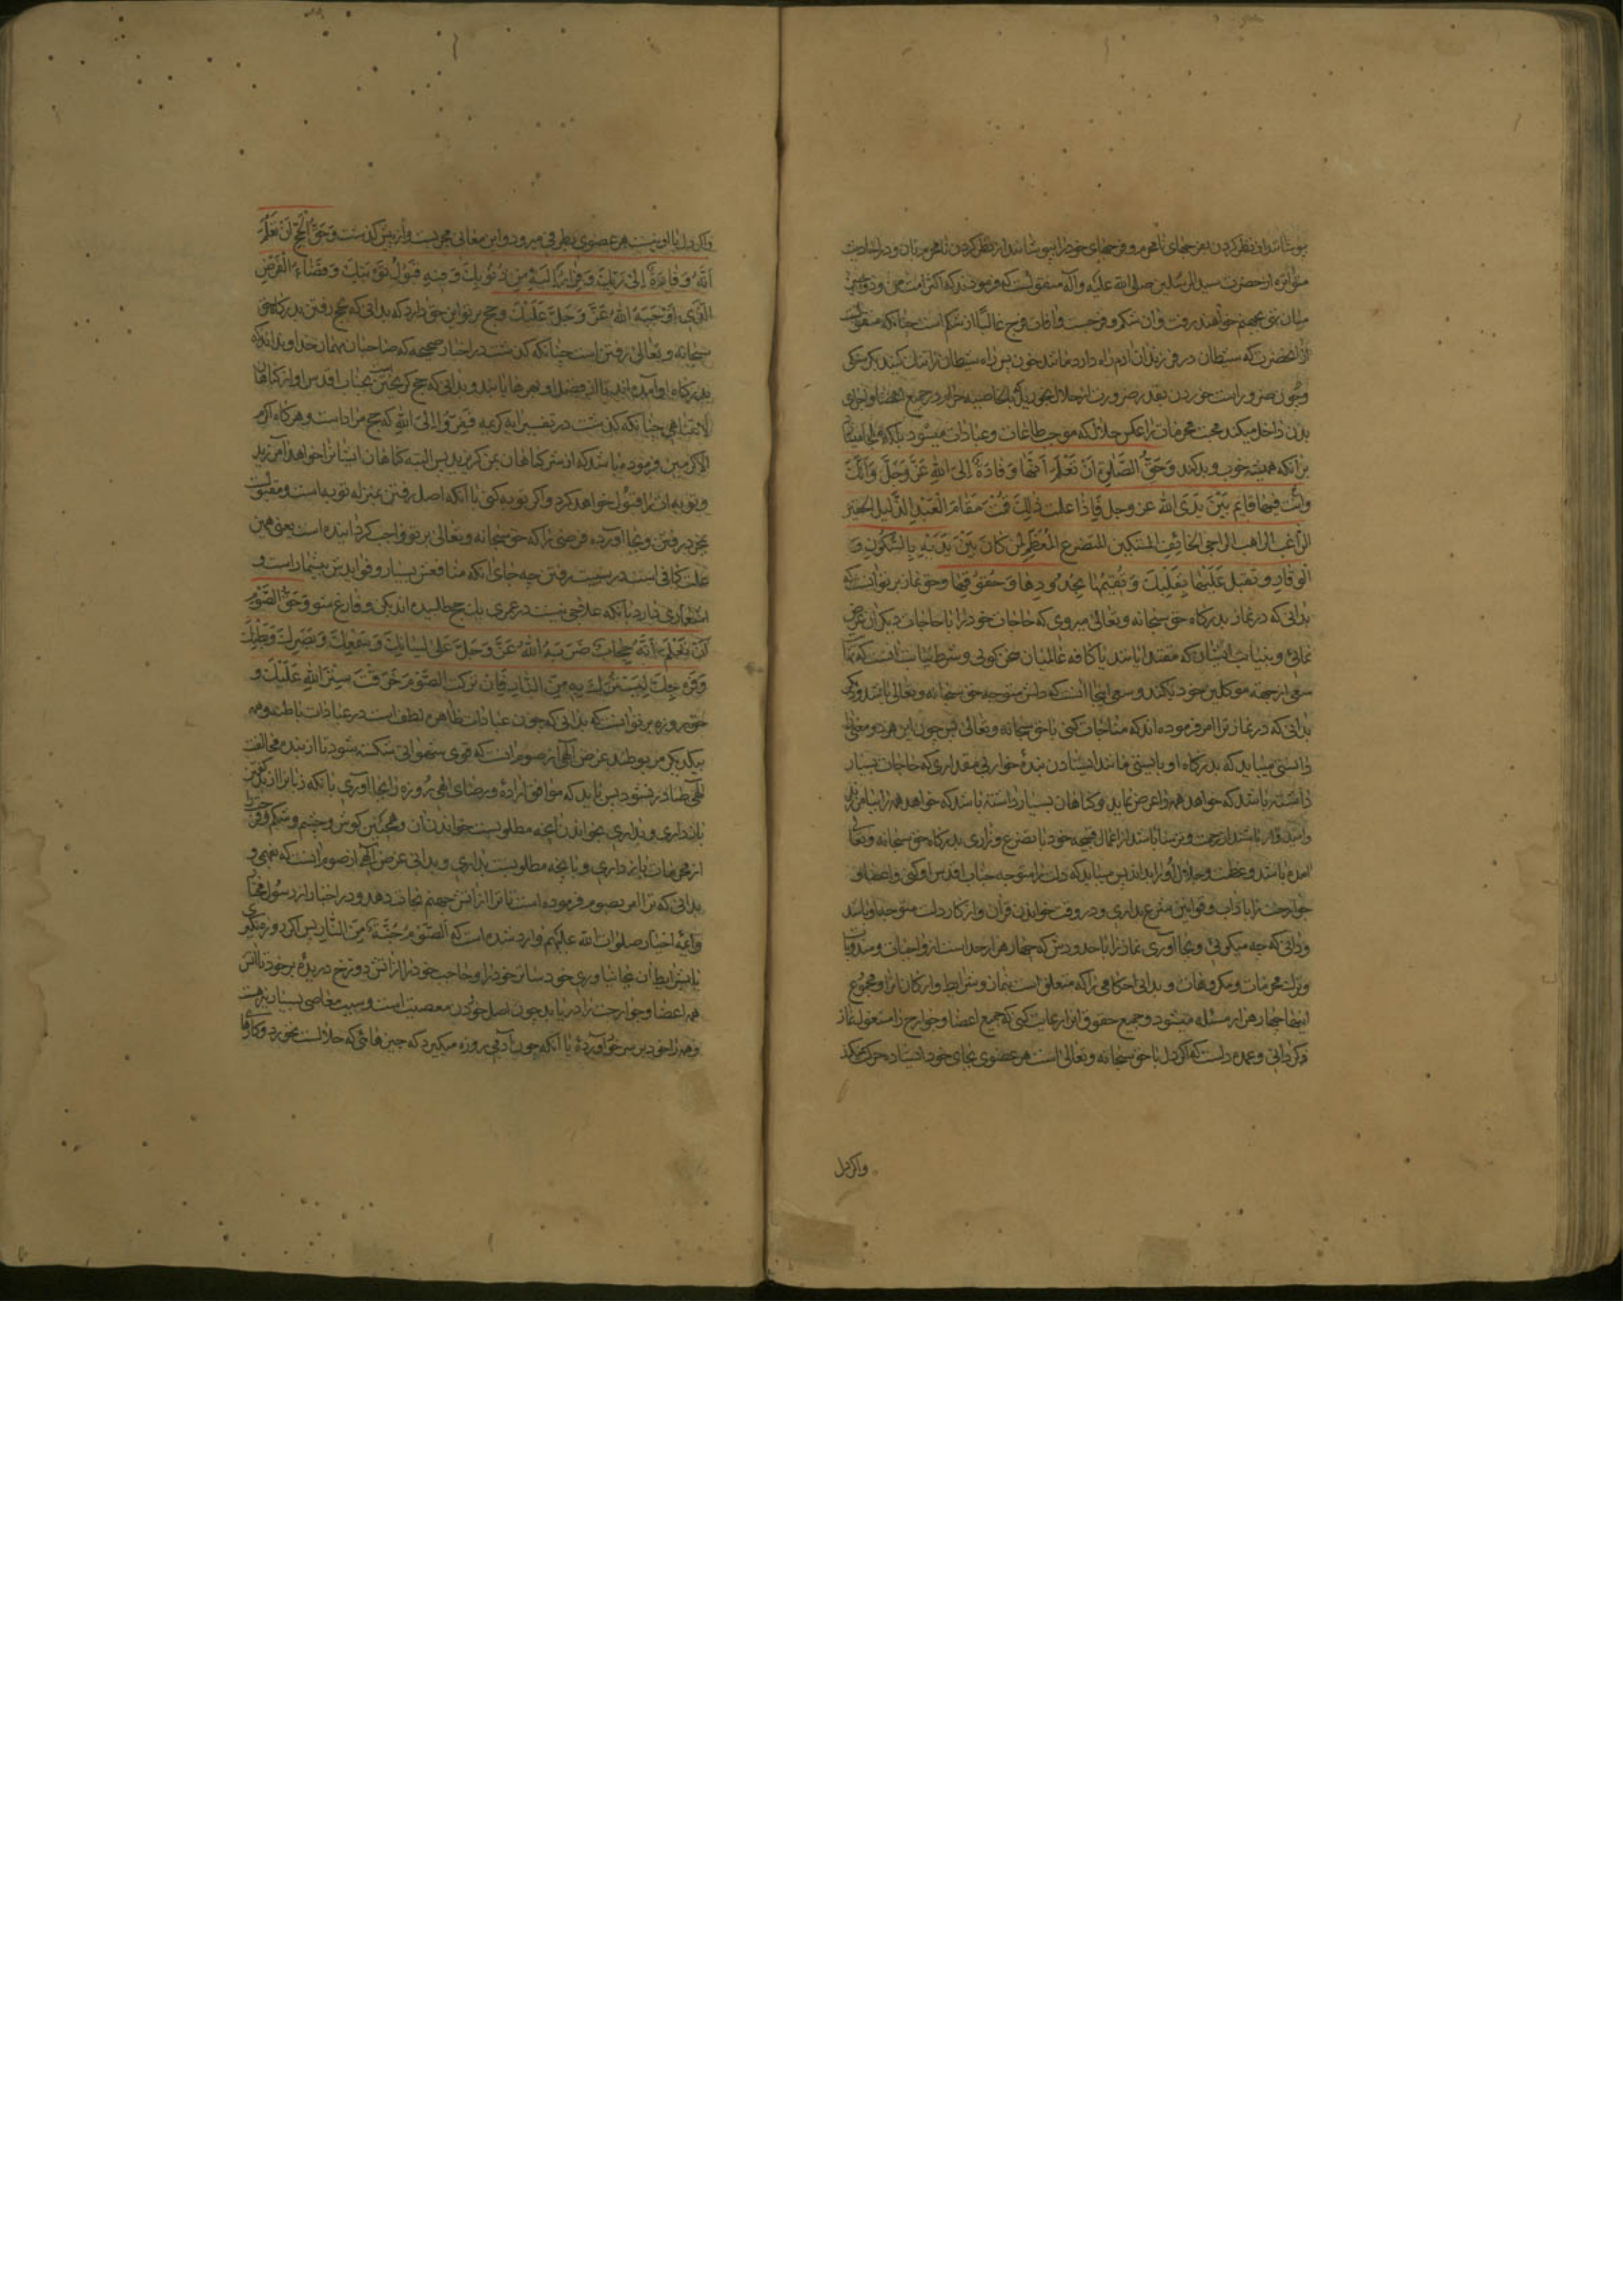 بپوشانند از نظر کردن بفرجهای نامحرم و فرجهای خود را بپوشانند از نظر کردن نامحرمان و در احادیث
متواتره از حضرت سید المرسلین صلی الله علیه وآله منقولست که فرمودند که اکثر امت من دو چیز
میان تهی بجهنم خواهند رفت و آن شکم و فرجست و آفات فرج غالبا از شکم است چنانکه منقولست
از آنحضرت که شیطان در فرزندان آدم راه دارد مانند خون پس راه شیطان را تنگ کنید بگرسنگی
و چون ضرور است خوردن بقدر ضرورت از حلال بخورید بالخاصیه حرام در جمیع اعضا و اجزای
بدن داخل میکند محبت محرمات را عکس حلال که موجب طاعات و عبادات میشود بلکه
برانکه همیشه خوب و بد کند وَحَقُّ الصَّلٰوةِ اَنْ تَعْلَمَ اَنَّهَا وِفَادَةٌ اِلَی اللهِ عَزَّ وَجَلَّ وَاَنَّكَ
وانت فیها قایم بَیْنَ یَدَیِ الله عز وجل فَاِذَا علمت ذٰلِكَ قُمْتَ مَقَامَ الْعَبْدِ الذَّلیلِ الحقیر
الراغب الراهب الراجی الخائِفِ المستکین المتضرع الْمُعَظِّمِ لِمَنْ کَانَ بَیْنَ یَدَیْهِ بِالسُّکُونِ وَ
الْوَقارِ و تقبل عَلَیْهَا بِقَلْبِكَ وَ تُقِیمَهَا بِحُدُودِهَا وَ حُقُوقِهَا وحق نماز بر تو آنست که
بدانی که در نماز بدرکاه حق سبحانه و تعالی میروی که حاجات خود را یا حاجات دیکران عرض
نمائی و بنیابت ایشان که مقتدا باشد یا کافه عالمیان سخن کوئی و شرط نیابت آنست که
سعی از جهة موکلین خود بکند و سعی اینجا آنست که دلش متوجه حق سبحانه و تعالی باشد و دیکر
بدانی که در نماز ترا امر فرموده اند که مناجات کنی با حق سبحانه و تعالی پس چون این هر دو معنی
دانستی میباید که بدرکاه او بایستی مانند ایستادن بندهٔ خواری مقداری که حاجات بسیار
داشته باشد که خواهد همه را عرض نماید و کناهان بسیار داشته باشد که خواهد همه را بیامرزند
وامیدوار باشد از رحمت و ترسنا باشد از اعمال قبیحه خود با تضرع و زاری بدرکاه حق سبحانه وتعالی
آمده باشد و عظمت و جلال او را بداند پس میباید که دلت را متوجه جناب اقدس او کنی و اعضا و
جوارحت را باداب و قوانین شرع بداری و در وقت خواندن قرآن و اذکار دلت متوجه باو باشد
و دانی که چه میکوئی و بجا آوری نماز را با حدودش که چهار هزار حد است از واجبات و مندوبات
و ترك محرمات و مکروهات و بدانی احکامی را که متعلق است بنماز و شرایط و ارکان آنرا و مجموع
اینها چهار هزار مسئله میشود و جمیع حقوق آنرا رعایت کنی که جمیع اعضا و جوارح را مشغول نماز
کردانی و عمده دلست که اکر دل با حق سبحانه و تعالی است هر عضوی بجای خود ایستاده حرکت نمیکند
واکر دل
واکر دل با او نیست هر عضوی بطرفی میرود و این معانی مجربست و از پیش کذشت وَحَقُّ الْحَجِّ اَنْ تَعْلَمَ
اَنَّهُ وَفَادَةٌ اِلٰی رَبِّكَ وَ فِرَارٌ اِلَیْهِ مِنْ ذُنُوبِكَ وَ فِیهِ قَبُولُ تَوْبَتِكَ وَ قَضَاءُ الْفَرْضِ
الَّذِی اَوْجَبَهُ اللهُ عَزَّ وَجَلَّ عَلَیْكَ وحج بر تو این حق دارد که بدانی که بحج رفتن بدرکاه حق
سبحانه و تعالی رفتن است چنانکه کذشت در اخبار صحیحه که صاحبان مهمان خدا و
بدرکاه او آمده اند تا از فضل او بهرها یابند و بدانی که حج کریختن است بجناب اقدس او از کناهان
لایتناهی چنانکه کذشت در تفسیر آیه کریمه فَفِرُّوا اِلَی اللهِ که حج مراد است و هر کاه اکرم
الاکرمین فرموده باشد که از شر کناهان بمن کریزید پس البته کناهان ایشانرا خواهد آمرزید
و توبه انرا قبول خواهد کرد و اکر توبه کنی با آنکه اصل رفتن بمنزله توبه است و مقبولست
بمجرد رفتن و بجا آورده فرضی را که حق سبحانه و تعالی بر تو واجب کردانیده است یعنی همین
علت کافی است در سبب رفتن چه جای آنکه منافعش بسیار و فوایدش بیشمار است و
اشعاری دارد بانکه علاقه نیست در عمری یك حج طلبیده اند بکن و فارغ شو وَ حَقُّ الصَّوْمِ
اَنْ تَعْلَمَ اَنَّهُ حِجَابٌ ضَرَبَهُ اللهُ عَزَّ وَجَلَّ عَلٰی لِسَانِكَ وَ سَمْعِكَ وَ بَصَرِكَ وَ بَطْنِكَ
وَ فَرْجِكَ لِیَسْتُرَكَ بِهِ مِنَ النَّارِ فَاِنْ تَرَکْتَ الصَّوْمَ خَرَقْتَ سِتْرَ اللهِ عَلَیْكَ و
حق روزه بر تو آنست که بدانی که چون عبادات ظاهره لطف است در عبادات باطنه و همه
بیکدیکر مربوطند غرض الهی از صوم آنست که قوی شهوانی شکسته شود تا از بنده مخالفت
الهی صادر نشود پس باید که موافق اراده و رضای الهی روزه را بجا آوری بانکه زبانرا از
بازداری و بداری بخواندن آنچه مطلوبست خواندن آن و همچنین کوش و چشم و شکم و فرج
از محرمات بازداری و بانچه مطلوبست بداری و بدانی غرض الهی از صوم آنست که بفهمی و
بدانی که ترا امر بصوم فرموده است تا ترا از آتش جهنم نجات دهد و در اخبار از رسول مختار
وائمه اخیار صلوات الله علیهم وارد شده است که اَلصَّوْمُ جُنَّةٌ مِنَ النَّارِ پس اکر روزه نکیری
یا بشرایط آن بجا نیاوری خود ساتر خود را و حاجب خود را از آتش دوزخ دریدهٔ بر خود تا آتش
همه اعضا و جوارحت را دریابد چون اصل خوردن معصیت است و سبب معاصی بسیار
و همه را خود بر سر خود آوردهٔ با آنکه چون آدمی روزه میکیرد که چیزهائی که حلالست نخورد و